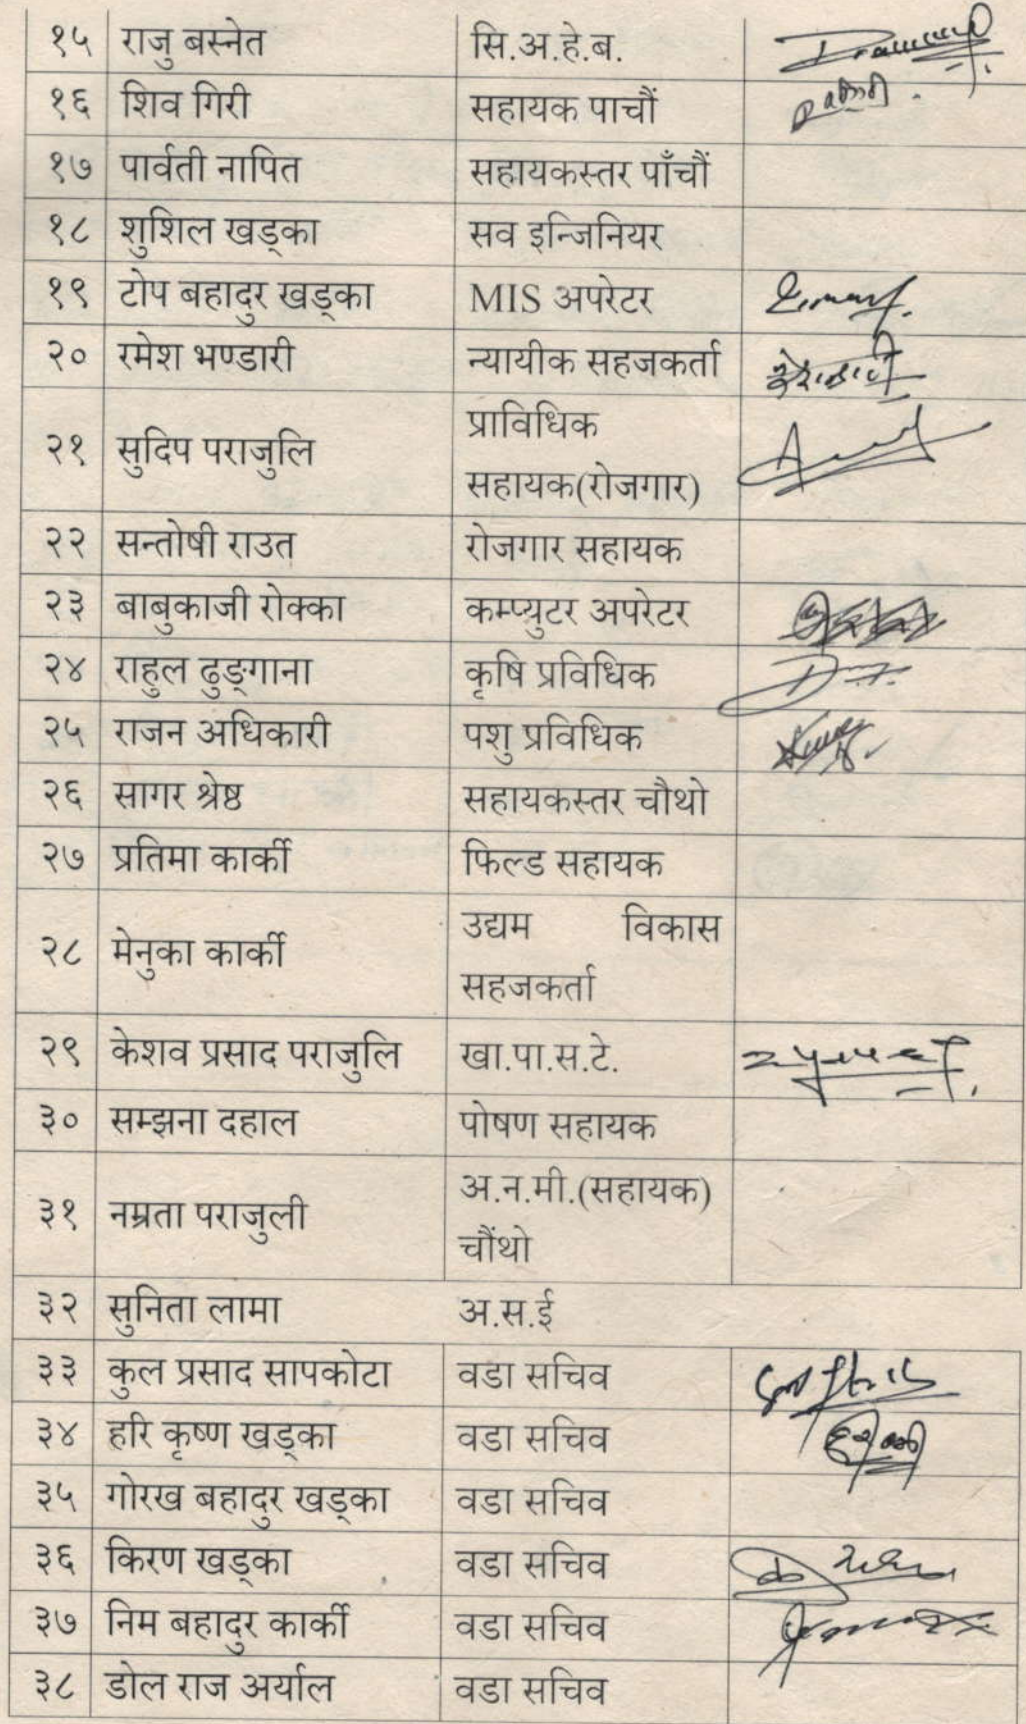 १५ राजु बस्नेत सि.अ.हे.ब.
१६ शिव गिरी सहायक पाचौं
१७ पार्वती नापित सहायकस्तर पाँचौं
१८ शुशिल खड्का सव इन्जिनियर
१९ टोप बहादुर खड्का MIS अपरेटर
२० रमेश भण्डारी न्यायीक सहजकर्ता
२१ सुदिप पराजुलि प्राविधिक
सहायक(रोजगार)
२२ सन्तोषी राउत रोजगार सहायक
२३ बाबुकाजी रोक्का कम्प्युटर अपरेटर
२४ राहुल ढुङ्गाना कृषि प्रविधिक
२५ राजन अधिकारी पशु प्रविधिक
२६ सागर श्रेष्ठ सहायकस्तर चौथो
२७ प्रतिमा कार्की फिल्ड सहायक
२८ मेनुका कार्की उद्यम विकास
सहजकर्ता
२९ केशव प्रसाद पराजुलि खा.पा.स.टे.
३० सम्झना दहाल पोषण सहायक
३१ नम्रता पराजुली अ.न.मी.(सहायक)
चौंथो
३२ सुनिता लामा अ.स.ई
३३ कुल प्रसाद सापकोटा वडा सचिव
३४ हरि कृष्ण खड्का वडा सचिव
३५ गोरख बहादुर खड्का वडा सचिव
३६ किरण खड्का वडा सचिव
३७ निम बहादुर कार्की वडा सचिव
३८ डोल राज अर्याल वडा सचिव